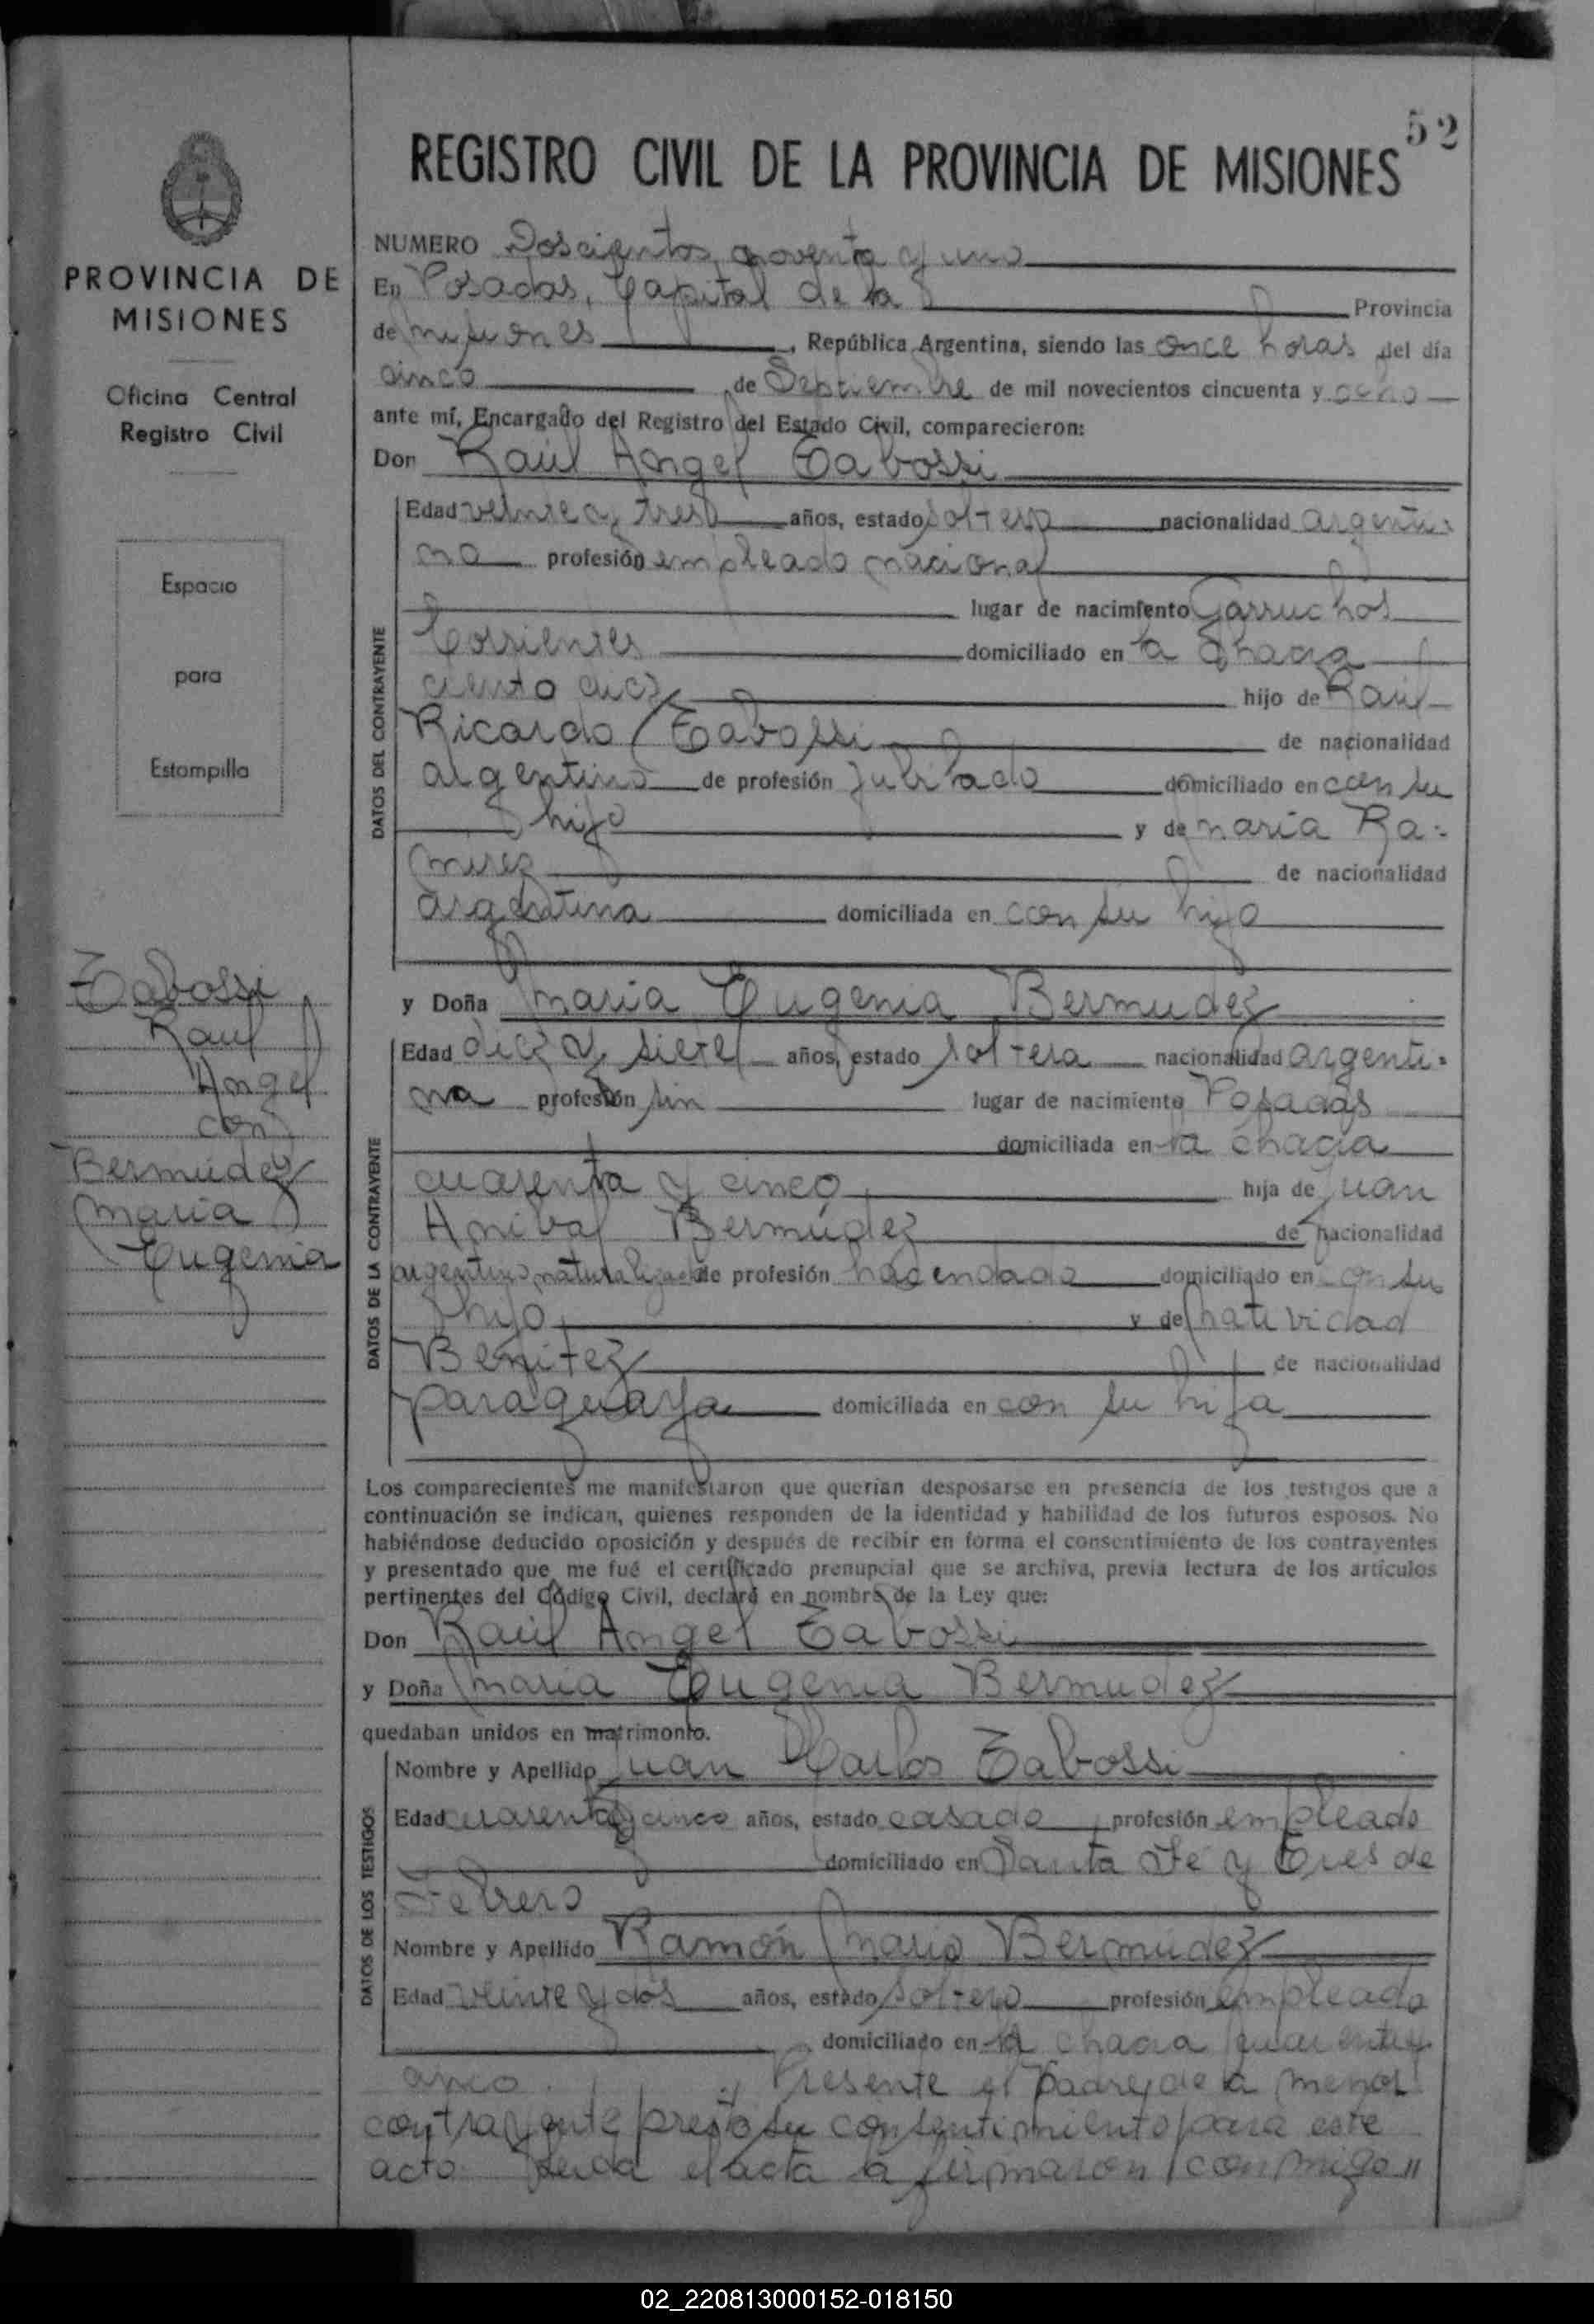 52
REGISTRO CIVIL DE LA PROVINCIA DE MISIONES
PROVINCIA DE
MISIONES
Oficina Central
Registro Civil
Espacio
para
Estampilla
Tabossi
Raul
Angel
con
Bermúdez
Maria
Eugenia
NUMERO Doscientos noventa y uno
En Posadas, Capital de la Provincia
de Misiones, República Argentina, siendo las once horas del día
cinco de Septiembre de mil novecientos cincuenta y ocho
ante mí, Encargado del Registro del Estado Civil, comparecieron:
Don Raúl Angel Tabossi
DATOS DEL CONTRAYENTE
Edad veinte y tres años, estado soltero nacionalidad argenti-
no profesión empleado nacional
lugar de nacimiento Garruchos
Corrientes domiciliado en la chacra
ciento diez hijo de Raúl
Ricardo Tabossi de nacionalidad
argentino de profesión Jubilado domiciliado en con su
hijo y de Maria Ra-
mirez de nacionalidad
argentina domiciliada en con su hijo
y Doña Maria Eugenia Bermudez
DATOS DE LA CONTRAYENTE
Edad diez y siete años, estado soltera nacionalidad argenti-
na profesión sin lugar de nacimiento Posadas
domiciliada en la chacra
cuarenta y cinco hija de Juan
Anibal Bermúdez de nacionalidad
argentino naturalizado de profesión hacendado domiciliado en con su
hijo y de Natividad
Benitez de nacionalidad
paraguaya domiciliada en con su hija
Los comparecientes me manifestaron que querían desposarse en presencia de los testigos que a
continuación se indican, quienes responden de la identidad y habilidad de los futuros esposos. No
habiéndose deducido oposición y después de recibir en forma el consentimiento de los contrayentes
y presentado que me fué el certificado prenupcial que se archiva, previa lectura de los artículos
pertinentes del Código Civil, declaré en nombre de la Ley que:
Don Raúl Angel Tabossi
y Doña Maria Eugenia Bermudez
quedaban unidos en matrimonio.
DATOS DE LOS TESTIGOS
Nombre y Apellido Juan Carlos Tabossi
Edad cuarenta y cinco años, estado casado profesión empleado
domiciliado en Santa Fé y Tres de
Febrero
Nombre y Apellido Ramón Mario Bermúdez
Edad veinte y dos años, estado soltero profesión empleado
domiciliado en la chacra cuarenta y
cinco. Presente el padre de la menor
contrayente presto su consentimiento para este
acto. Leida el acta la firmaron conmigo
02_220813000152-018150